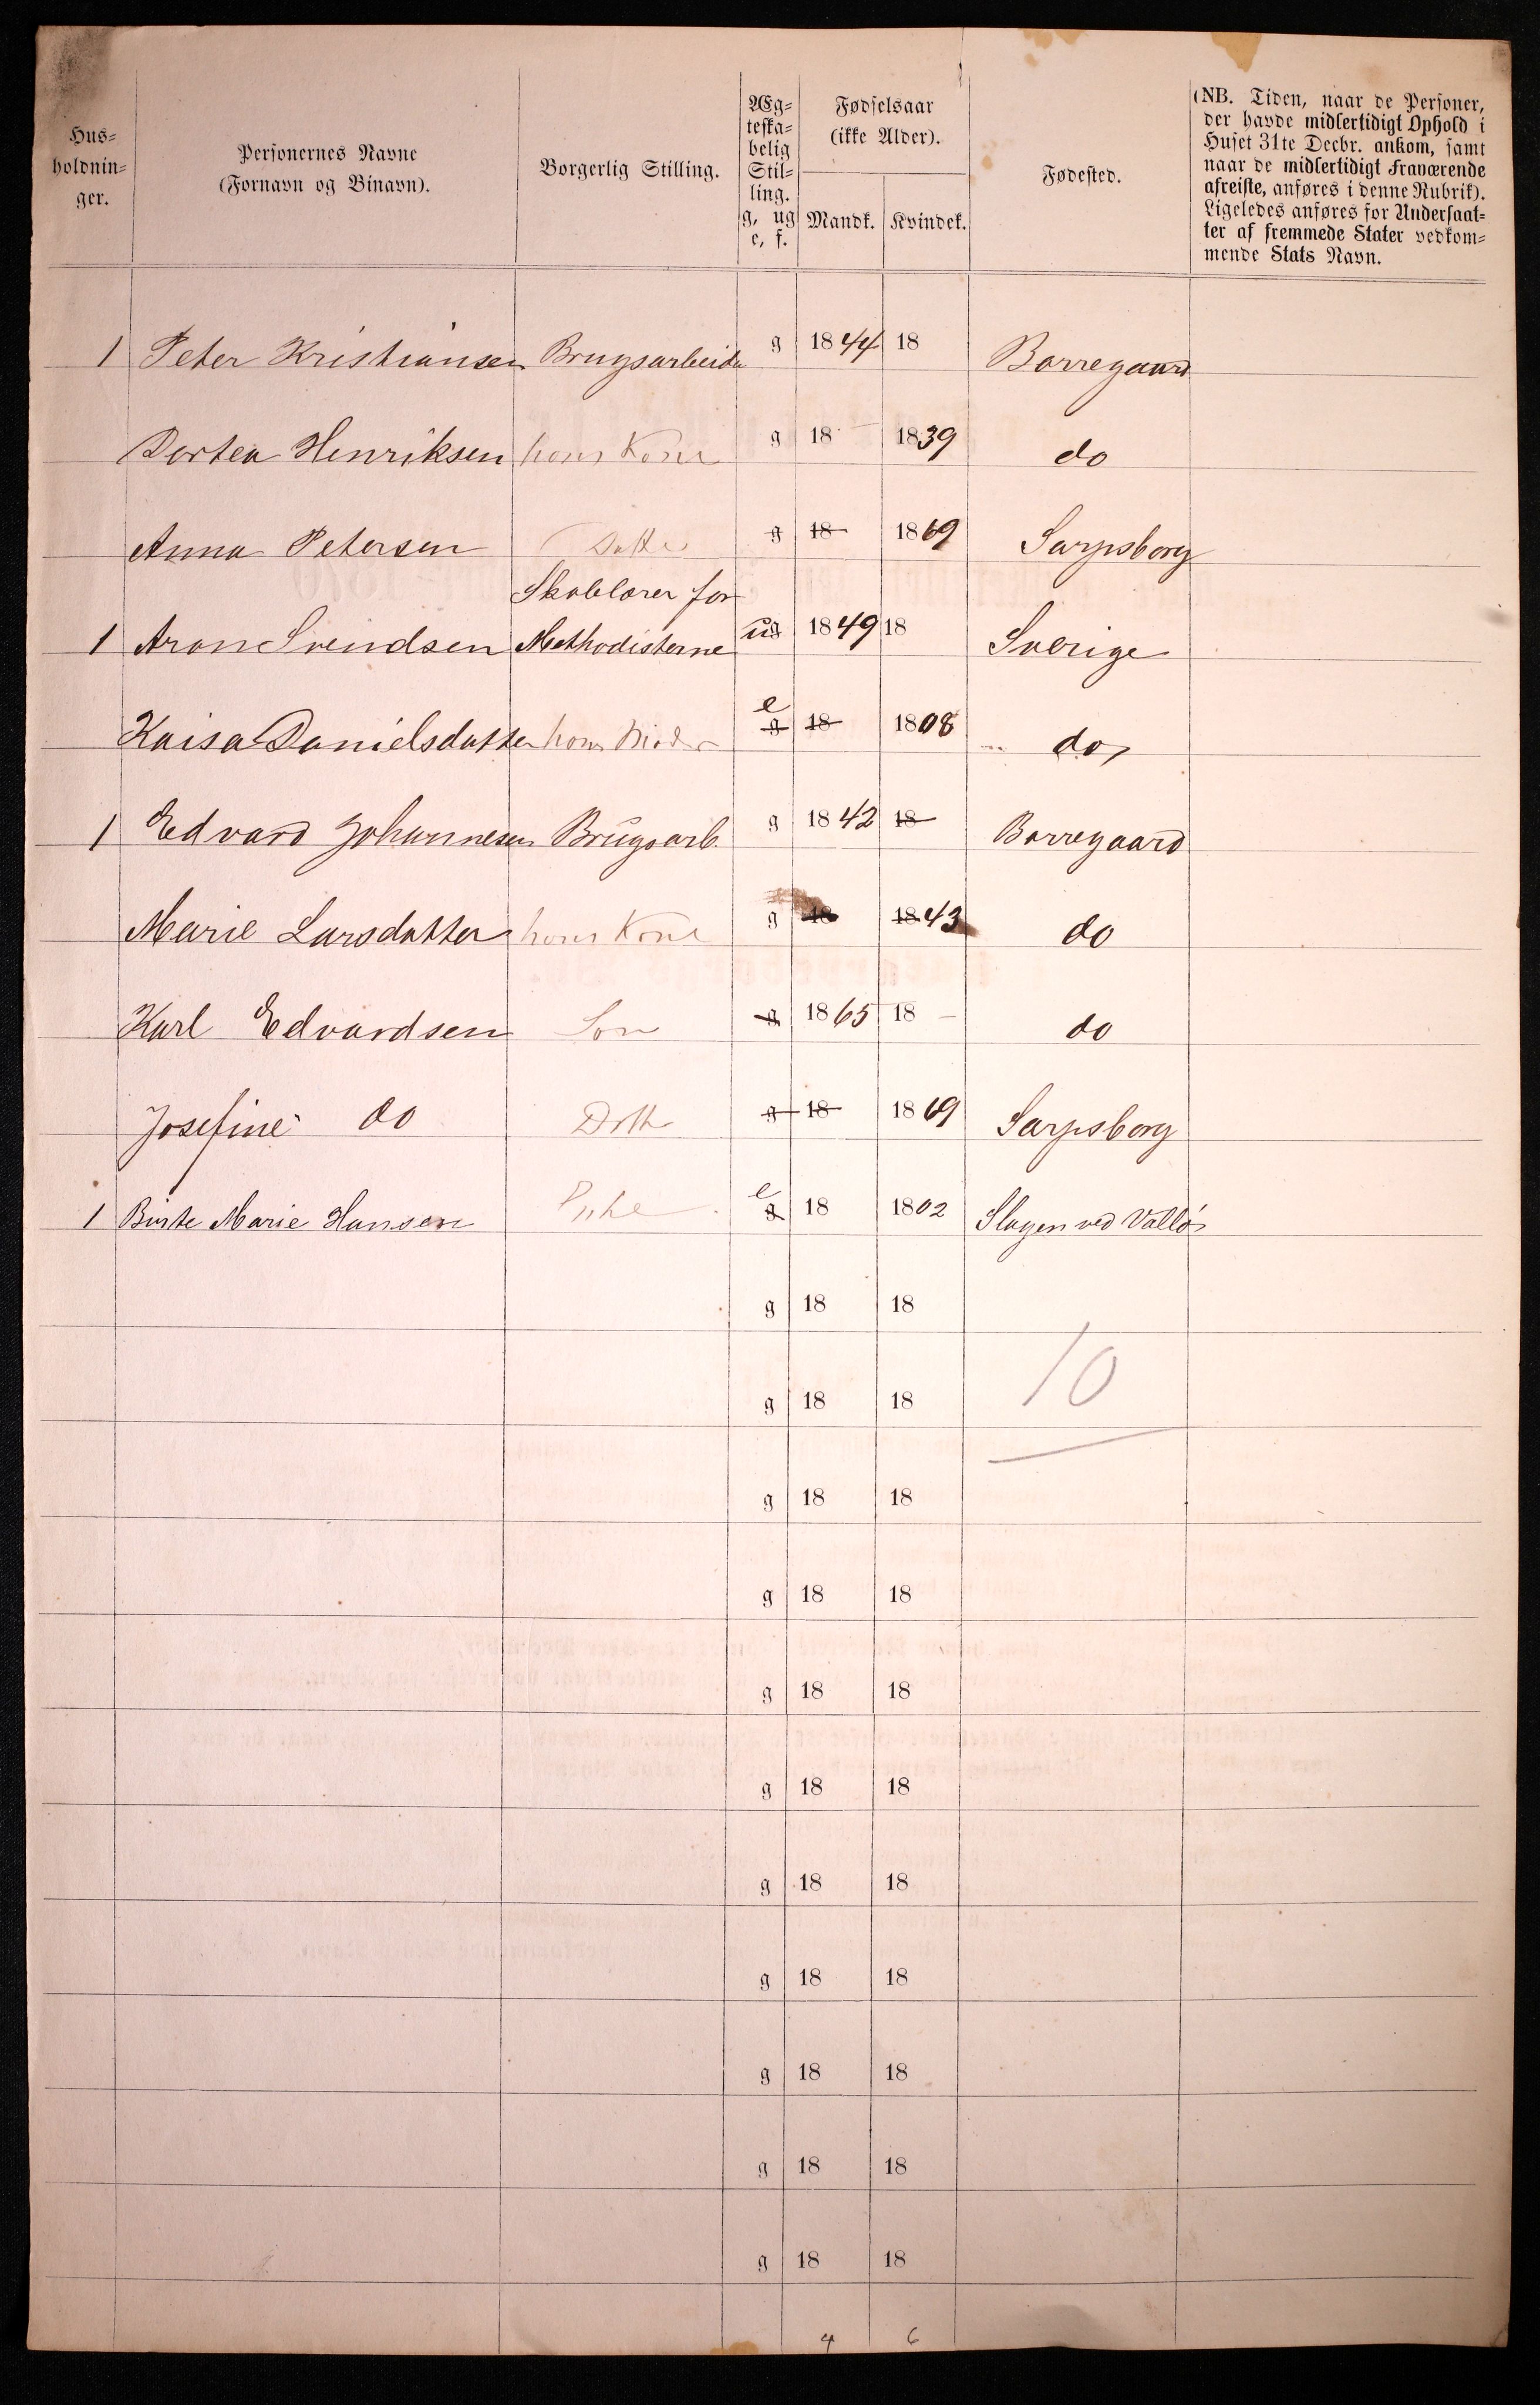 Hus-
holdnin-
ger.
Personernes Navne
(Fornavn og Binavn).
Borgerlig Stilling.
Æg-
teska-
belig
Stil-
ling.
g, ug
e, f.
Fødselsaar
(ikke Alder).
Mandk. Kvindek.
Fødested.
(NB. Tiden, naar de Personer,
der havde midlertidigt Ophold i
Huset 31te Decbr. ankom, samt
naar de midlertidigt Fraværende
afreiste, anføres i denne Rubrik).
Ligeledes anføres for Undersaat-
ter af fremmede Stater vedkom-
mende Stats Navn.
1 Peter Kristiansen Brugsarbeider g 1844 18 Borregaard
Dortea Henriksen hans Kone g 18 1839 do
Anna Petersen Datter g 18 1869 Sarpsborg
Skolelærer for
1 Aron Svendsen Methodisterne ug 1849 18 Sverige
Kaisa Danielsdatter hans Moder e g 18 1808 do,
1 Edvard Johannesen Brugsarb. g 1842 18 Borregaard
Marie Larsdatter hans Kone g 18 1843 do
Karl Edvardsen Søn g 1865 18 do
Josefine do Dotter g 18 1869 Sarpsborg
1 Birte Marie Hansen Enke e g 18 1802 Slagen ved Vallø
g 18 18
g 18 18 10
g 18 18
g 18 18
g 18 18
g 18 18
g 18 18
g 18 18
g 18 18
g 18 18
g 18 18
4 6